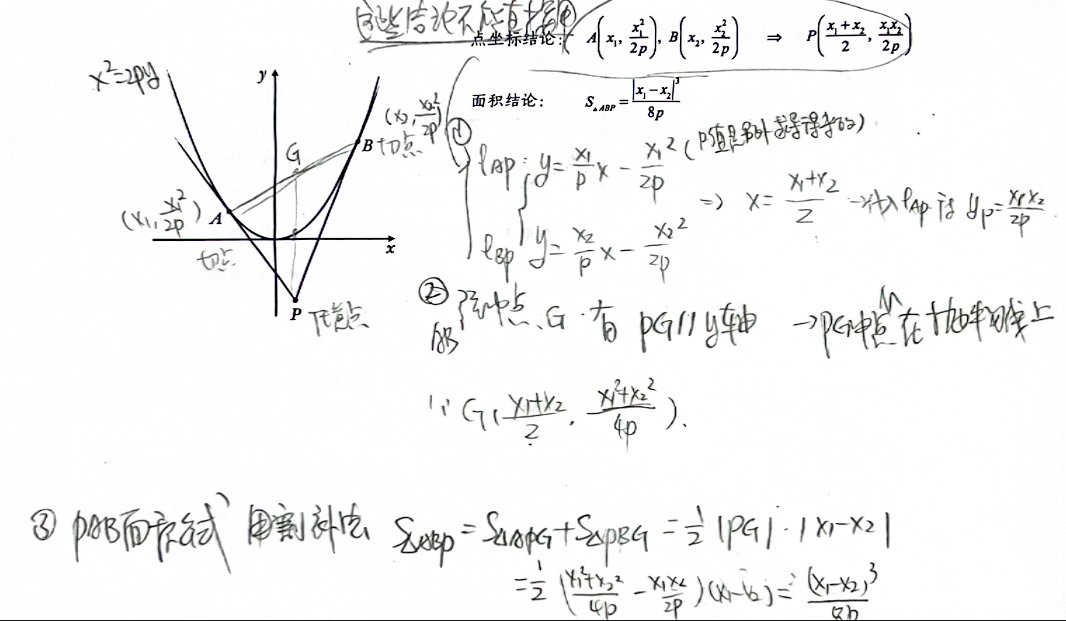 这些结论不能直接用
点坐标结论: A(x₁, x₁²/2p), B(x₂, x₂²/2p) ⇒ P((x₁+x₂)/2, x₁x₂/2p)
面积结论: S△ABP = |x₁-x₂|³/8p
x²=2py
y
(x₂, x₂²/2p)
B 切点
G
(x₁, x₁²/2p) A
切点
x
P
① l_AP: y = x₁/p x - x₁²/2p (
l_BP y = x₂/p x - x₂²/2p
⇒ x = (x₁+x₂)/2 →代入 l_AP 得 y_p = x₁x₂/2p
② 弦中点 G. 有 PG // y轴 → PG中点M在抛物线上
AB
∵ G((x₁+x₂)/2, (x₁²+x₂²)/4p).
③ PAB面积公式 用割补法 S△ABP = S△APG + S△PBG = 1/2 |PG|·|x₁-x₂|
= 1/2 ((x₁²+x₂²)/4p - x₁x₂/2p)(x₁-x₂) = (x₁-x₂)³/8p